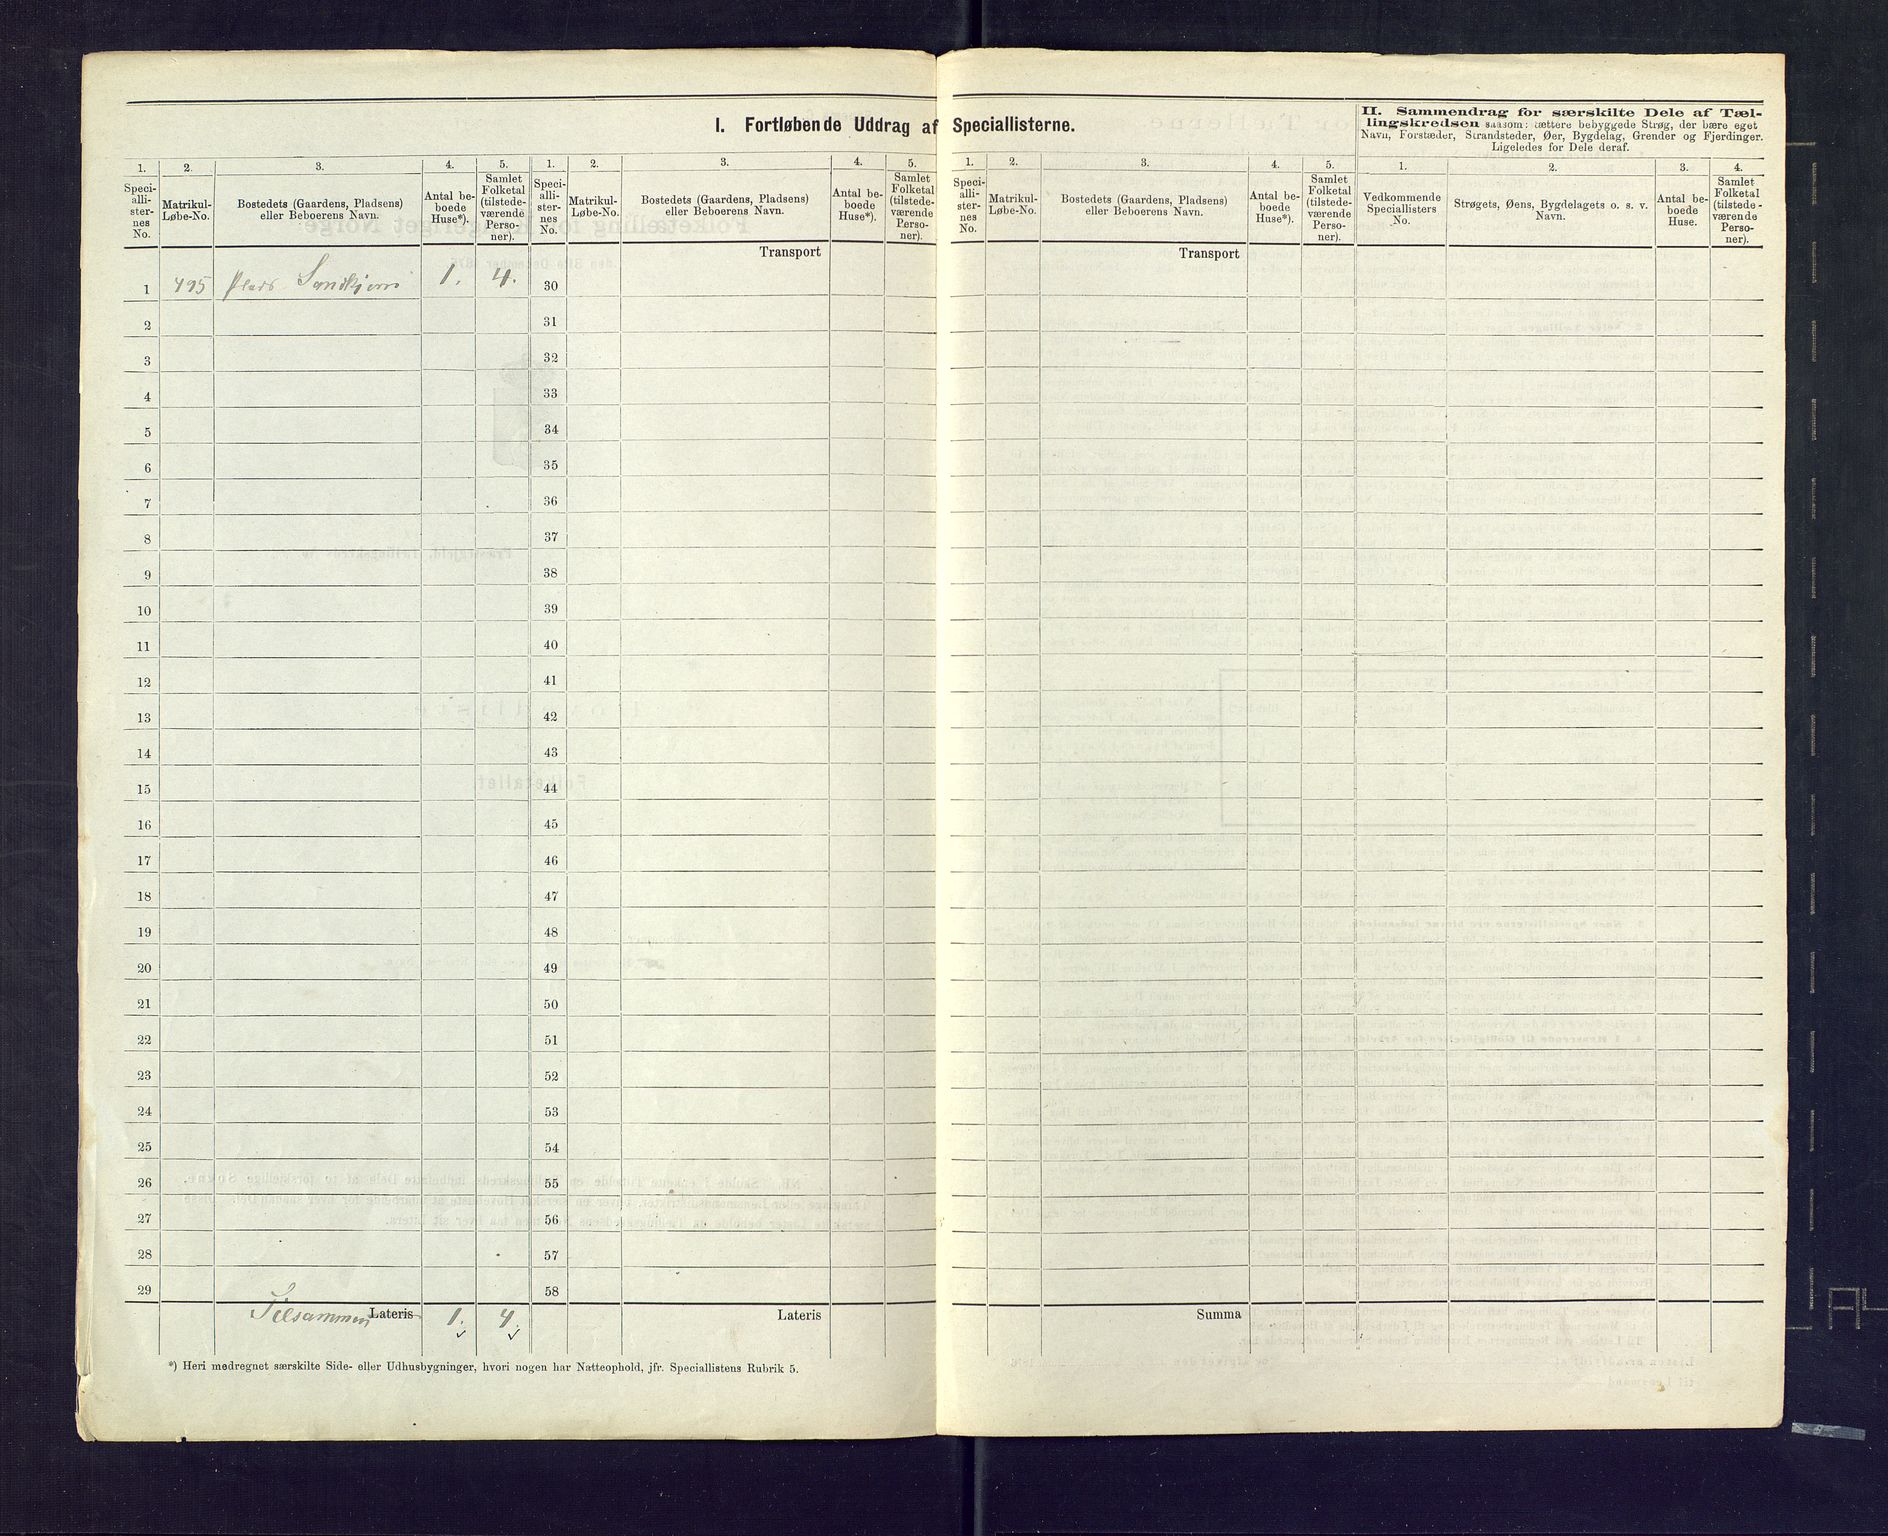 I. Fortløbende Uddrag af Speciallisterne.
II. Sammendrag for særskilte Dele af Tæl-
lingskredsen saasom: tættere bebyggede Strøg, der bære eget
Navn, Forstæder, Strandsteder, Øer, Bygdelag, Grender og Fjerdinger.
Ligeledes for Dele deraf.
1. 2. 3. 4. 5. 1. 2. 3. 4. 5. 1. 2. 3. 4. 5. 1. 2. 3. 4.
Speci-
alli-
ster-
nes
No.
Matrikul-
Løbe-No.
Bostedets (Gaardens, Pladsens)
eller Beboerens Navn.
Antal be-
boede
Huse*).
Samlet
Folketal
(tilstede-
værende
Perso-
ner).
Speci-
alli-
ster-
nes
No.
Matrikul-
Løbe-No.
Bostedets (Gaardens, Pladsens)
eller Beboerens Navn.
Antal be-
boede
Huse*).
Samlet
Folketal
(tilstede-
værende
Perso-
ner).
Speci-
alli-
ster-
nes
No.
Matrikul-
Løbe-No.
Bostedets (Gaardens, Pladsens)
eller Beboerens Navn.
Antal be-
boede
Huse*).
Samlet
Folketal
(tilstede-
værende
Perso-
ner).
Vedkommende
Speciallisters
No.
Strøgets, Øens, Bygdelagets o. s. v.
Navn.
Antal be-
boede
Huse.
Samlet
Folketal
(tilstede-
værende
Perso-
ner).
Transport
Transport
1 495 Plads 1. 4. 30
2 31
3 32
4 33
5 34
6 35
7 36
8 37
9 38
10 39
11 40
12 41
13 42
14 43
15 44
16 45
17 46
18 47
19 48
20 49
21 50
22 51
23 52
24 53
25 54
26 55
27 56
28 57
29 58
Tilsammen Lateris 1. 4. Lateris Summa
*) Heri medregnet særskilte Side- eller Udhusbygninger, hvori nogen har Natteophold, jfr. Speciallistens Rubrik 5.